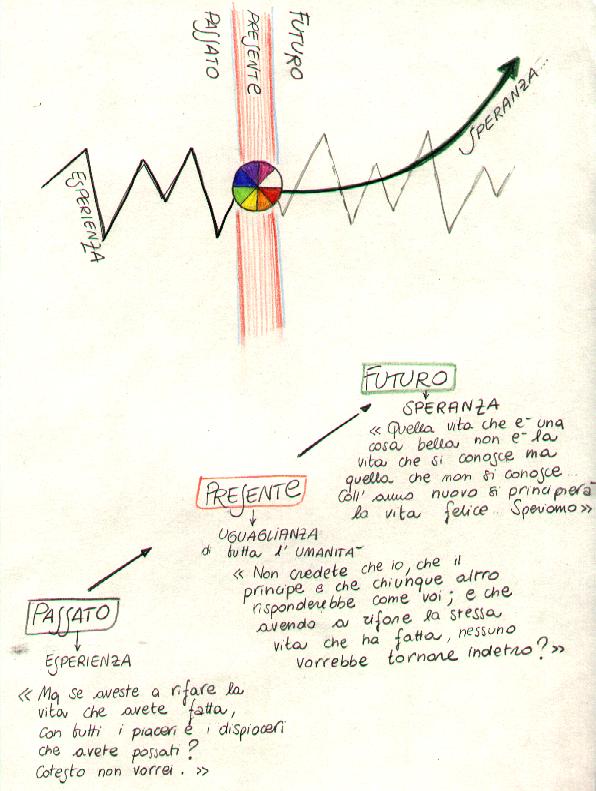 PASSATO
PRESENTE
FUTURO
ESPERIENZA
SPERANZA...
FUTURO
SPERANZA
« Quella vita che e- una
cosa bella non e- la
vita che si conosce ma
quella che non si conosce...
Coll' anno nuovo si principierà
la vita felice... Speriamo »
PRESENTE
UGUAGLIANZA
di tutta l' UMANITA-
« Non credete che io, che il
principe e che chiunque altro
risponderebbe come voi; e che
avendo a rifare la stessa
vita che ha fatta, nessuno
vorrebbe tornare indietro? »
PASSATO
ESPERIENZA
« Ma se aveste a rifare la
vita che avete fatta,
con tutti i piaceri e i dispiaceri
che avete passati?
Cotesto non vorrei. »